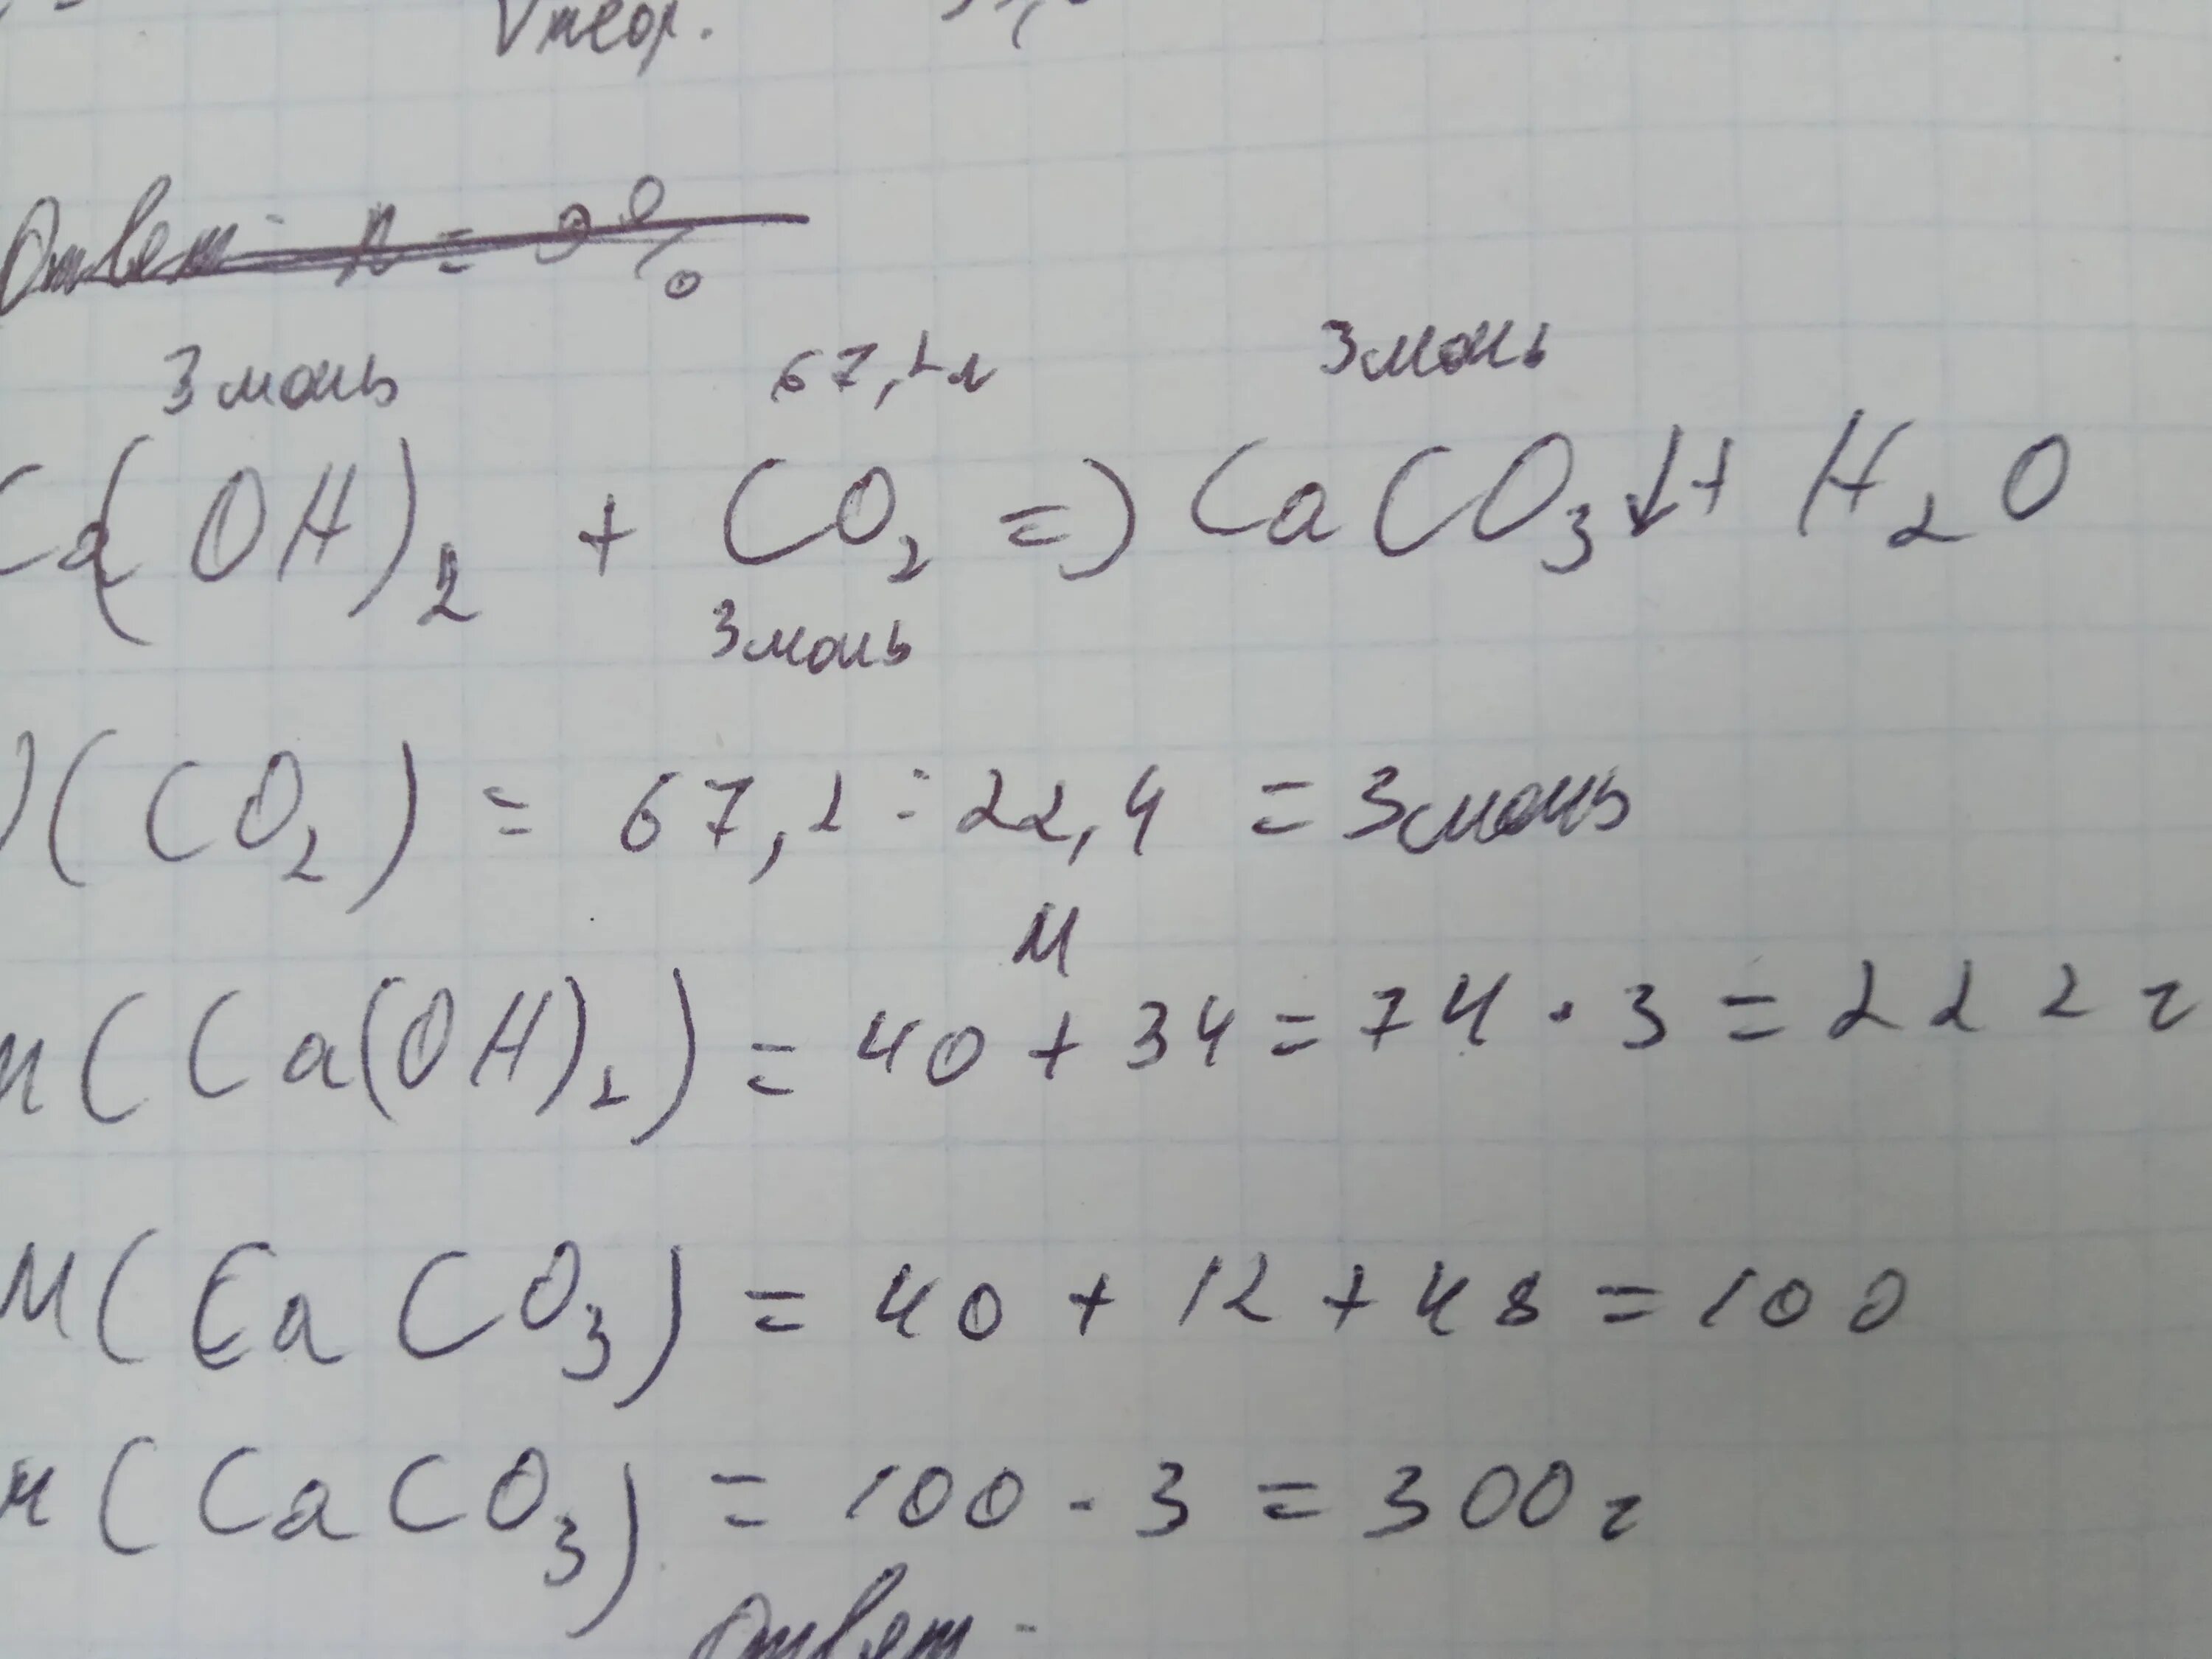 Vтеор.
Ответ: n = 9%
3 моль 67,2л 3 моль
Ca(OH)2 + CO2 => CaCO3↓ + H2O
3 моль
(CO2) = 67,2 : 22,4 = 3 моль
M
m(Ca(OH)2) = 40 + 34 = 74 · 3 = 222 г
M(CaCO3) = 40 + 12 + 48 = 100
m(CaCO3) = 100 · 3 = 300 г
Ответ: